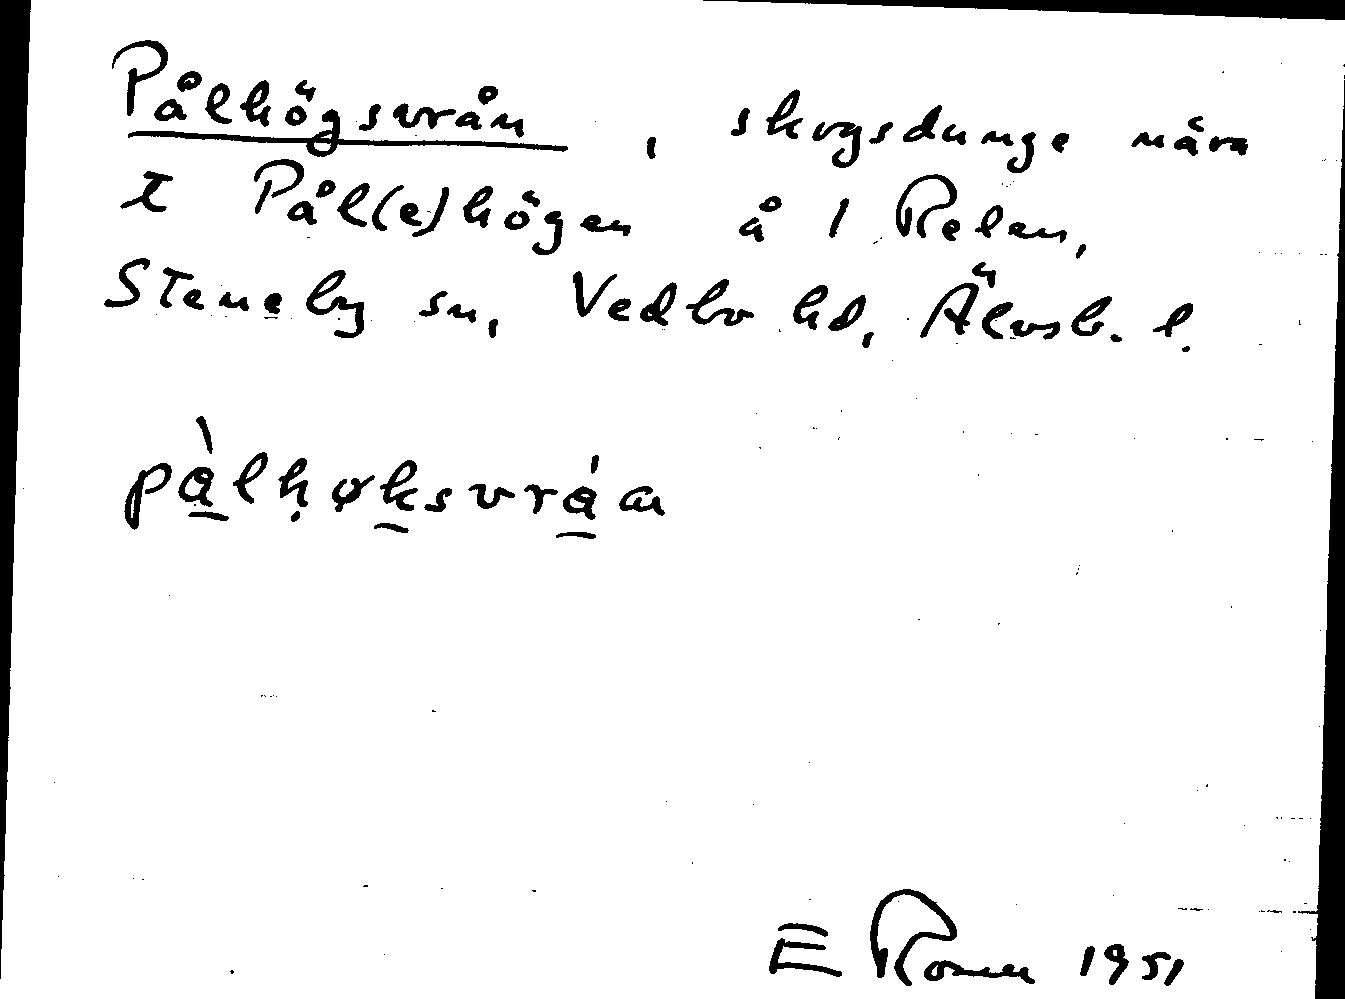 Pålhögsvrån, skogsdunge nära
t Pål(e)högen å 1 Relen,
Steneby sn, Vedbo hd, Älvsb. l.
pàlhøksvrán
E Rosen 1951